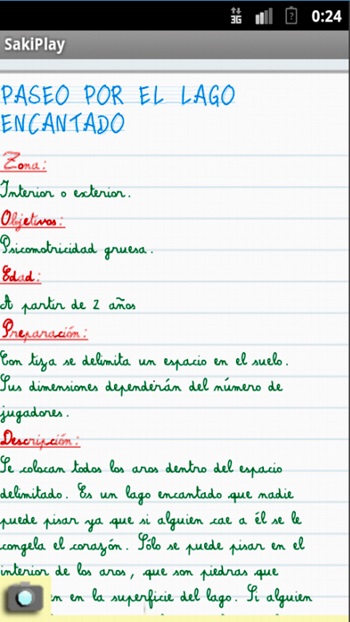 3G 0:24
SakiPlay
PASEO POR EL LAGO
ENCANTADO
Zona:
Interior o exterior.
Objetivos:
Psicomotricidad gruesa.
Edad:
A partir de 2 años
Preparación:
Con tiza se delimita un espacio en el suelo.
Sus dimensiones dependerán del número de
jugadores.
Descripción:
Se colocan todos los aros dentro del espacio
delimitado. Es un lago encantado que nadie
puede pisar ya que si alguien cae a él se le
congela el corazón. Sólo se puede pisar en el
interior de los aros, que son piedras que
en la superficie del lago. Si alguien